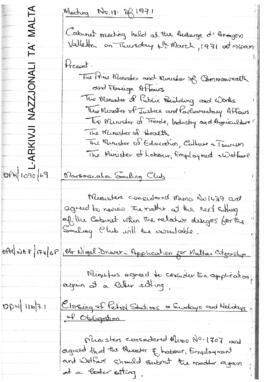 L-ARKIVJI NAZZJONALI TA' MALTA
Meeting No. 18 of 1971
Cabinet meeting held at the Auberge d'Aragon
Valletta on Thursday 4th March, 1971 at
Present
The Prime Minister and Minister of Commonwealth
and Foreign Affairs
The Minister of Public Building and Works
The Minister of Justice and Parliamentary Affairs
The Minister of Trade, Industry and Agriculture
The Minister of Health
The Minister of Education, Culture & Tourism
The Minister of Labour, Employment & Welfare
OPM/1090/69 Marsascala Sailing Club
Ministers considered Memo No 1639 and
agreed to review the matter at the next sitting
of the Cabinet when the relative designs for the
Sailing Club will be available.
Mr Nigel Driver - Application for Maltese Citizenship
Ministers agreed to consider the application
again at a later sitting.
OPM/116/71 Closing of Petrol Stations on Sundays and Holidays
of Obligation
Ministers considered Memo No. 1707 and
agreed that the Minister of Labour, Employment
and Welfare should submit the matter again
at a later sitting.